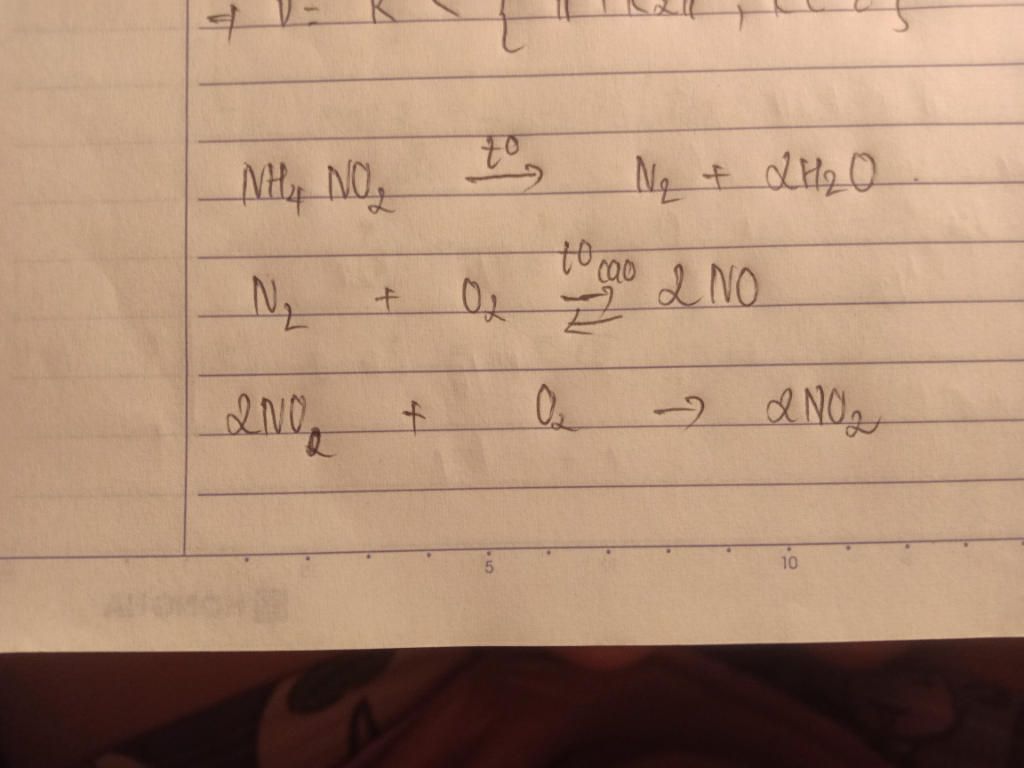 NH₄NO₂ →(t⁰) N₂ + 2H₂O.
N₂ + O₂ ⇌(t⁰ cao) 2NO
2NO₂ + O₂ → 2NO₂
5 10